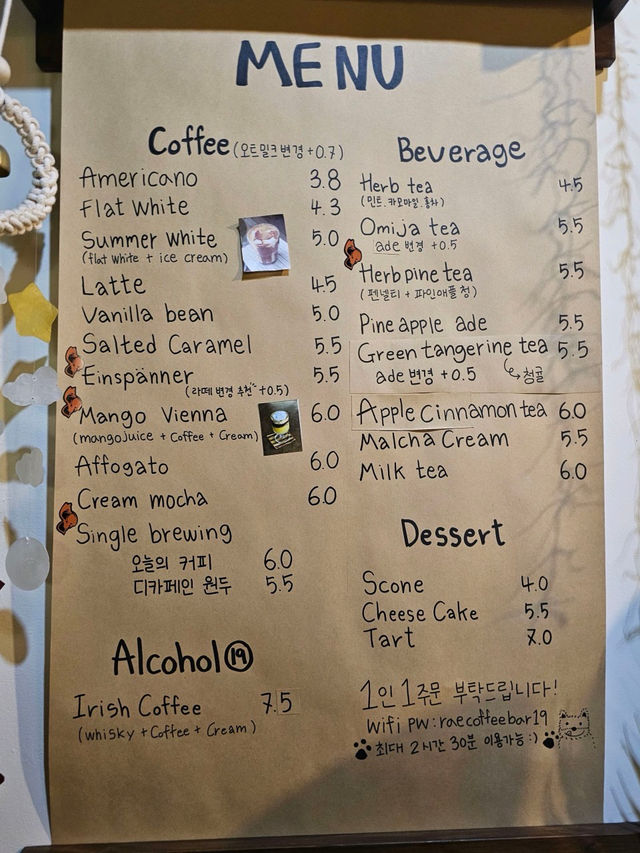 MENU
Coffee (오트밀크변경 +0.7)
Americano 3.8
Flat White 4.3
Summer white 5.0
(flat white + ice cream)
Latte 4.5
Vanilla bean 5.0
Salted Caramel 5.5
Einspänner 5.5
(라떼 변경 추천 +0.5)
Mango Vienna 6.0
(mangojuice + Coffee + Cream)
Affogato 6.0
Cream mocha 6.0
Single brewing
오늘의 커피 6.0
디카페인 원두 5.5
Alcohol 19
Irish Coffee 7.5
(whisky + Coffee + Cream)
Beverage
Herb tea 4.5
(민트.카모마일.홍차)
Omija tea 5.5
ade 변경 +0.5
Herb pine tea 5.5
(펜넬티 + 파인애플청)
Pineapple ade 5.5
Green tangerine tea 5.5
ade 변경 +0.5 청귤
Apple Cinnamon tea 6.0
Malcha Cream 5.5
Milk tea 6.0
Dessert
Scone 4.0
Cheese Cake 5.5
Tart 7.0
1인 1주문 부탁드립니다!
Wifi PW: raecoffeebar19
최대 2시간 30분 이용가능 :)